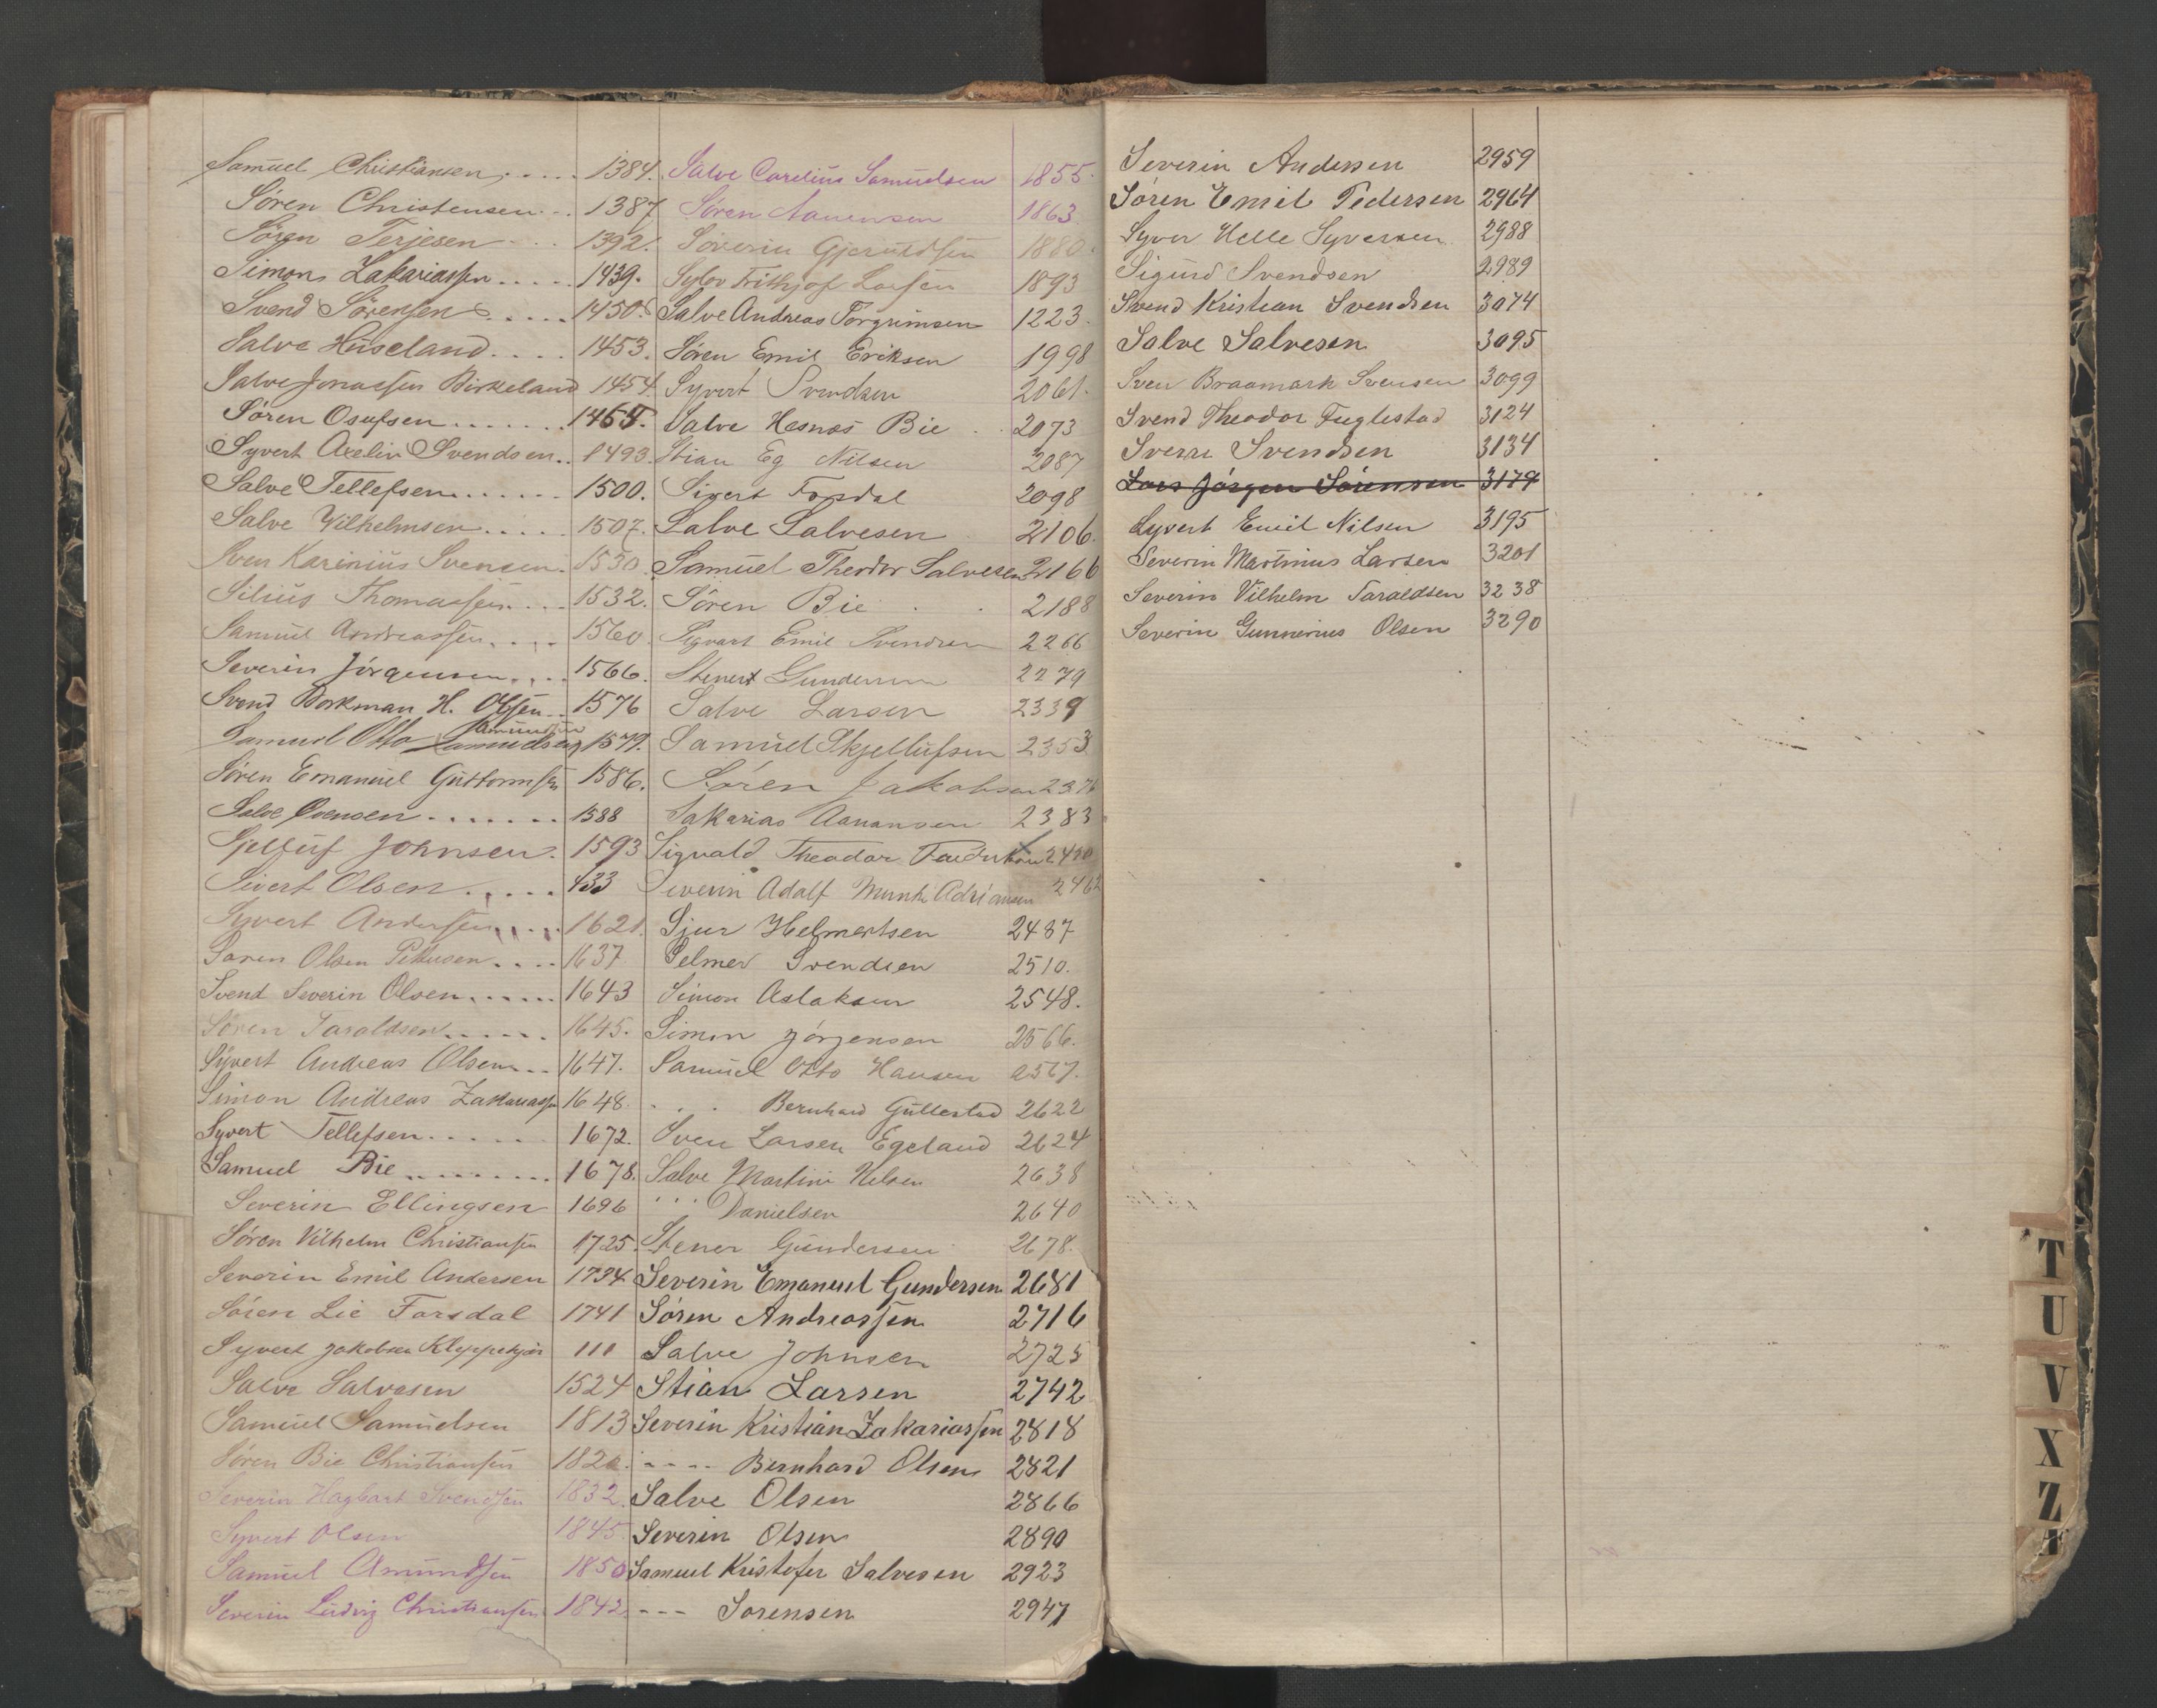 Samuel Christiansen 1384.
Søren Christensen 1387
Søren Terjesen 1392.
Simon Zakariassen 1439.
Svend Sørensen 1450.
Salve Huseland 1453.
Salve Jonassen Birkeland 1454.
Søren Osufsen 1465.
Syvert Axelin Svendsen 1493.
Salve Tellefsen 1500.
Salve Vilhelmsen 1507.
Sven Karinius Svensen 1530.
Silius Thomassen 1532.
Samuel Andreassen 1560
Severin Jørgensen 1566.
Svend Borkman H. Olsen 1576
Amundsen
Samuel Otto Samuelsen 1579.
Søren Emanuel Guttormsen 1586.
Salve Evensen 1588
Sjelluf Johnsen. 1593
Sivert Olsen 433
Syvert Andersen 1621.
Søren Olsen 1637
Svend Severin Olsen 1643
Søren Taraldsen 1645.
Syvert Andreas Olsen 1647.
Simon Andreas Zakariassen 1648.
Syvert Tellefsen 1672.
Samuel Bie 1678.
Severin Ellingsen 1696
Søren Vilhelm Christiansen 1725.
Severin Emil Andersen 1734
Søren Lie Farsdal 1741
Syvert Jakobsen 111
Salve Salvesen 1524
Samuel Samuelsen 1813
Søren Bie Christiansen 1820.
Severin Hagbart Svendsen 1832.
Syvert Olsen 1845.
Samuel Amundsen 1850
Severin Ludvig Christiansen 1842.
Salve Carelius Samuelsen 1855.
Søren Aanensen 1863
Severin Gjeruldsen 1880.
Frithjof Larsen 1893
Salve Andreas Torgrimsen 1223.
Søren Emil Eriksen 1998
Syvert Svendsen 2061.
Salve Hesnæs Bie 2073
Stian Eg Nilsen 2087
Sivert Fosdal 2098
Salve Salvesen 2106.
Samuel Theodor Salvesen 2166
Søren Bie 2188
Sigvart Emil Svendsen 2266
Stenert Gundersen 2279
Salve Larsen 2339
Samuel Skjellufsen 2353
Søren Jakobsen 237
Sakarias Aanansen 2383
Sigvald Theodor
Severin Adolf Munthe Adriansen 2462
Sjur Helmertsen 2487
Selmer Svendsen 2510.
Simon Aslaksen 2548.
Simon Jørgensen 2566.
Samuel Otto Hansen 2567.
. . . Bernhard Gullestad 2622
Sven Larsen Egeland 2624
Salve Martini Nelsen 2638
" " " Danielsen 2640
Stener Gundersen 2678.
Severin Emanuel Gundersen 2681
Søren Andreassen 2716
Salve Johnsen 2725
Stian Larsen 2742
Severin Kristian Zakariassen 2818
---- Bernhard Olsen 2821
Salve Olsen 2866
Severin Olsen 2890
Samuel Kristofer Salvesen 2923
--- Sorensen 2947
Severin Andersen 2959
Søren Emil Pedersen 2964
Syver Helle Syversen 2988
Sigurd Svendsen 2989
Svend Kristian Svendsen 3074
Salve Salvesen 3095
Sven Braamark Svensen 3099
Svend Theodor Fuglestad 3124
Sverre Svendsen 3134
Lars Jørgen Sörensen 3179
Syvert Emil Nilsen 3195
Severin Martinius Larsen 3201
Severin Vilhelm Taraldsen 3238
Severin Gunnerius Olsen 3290
T
U
V
X
Z
Æ